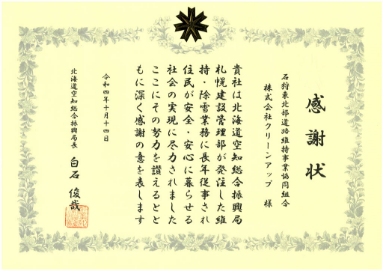 感謝状
石狩東北部道路維持事業協同組合
株式会社クリーンアップ 様
貴社は北海道空知総合振興局
札幌建設管理部が発注した維
持・除雪業務に長年従事され
住民が安全・安心に暮らせる
社会の実現に尽力されました
ここにその努力を讃えるとと
もに深く感謝の意を表します
令和四年十月十四日
北海道空知総合振興局長 白石 俊哉